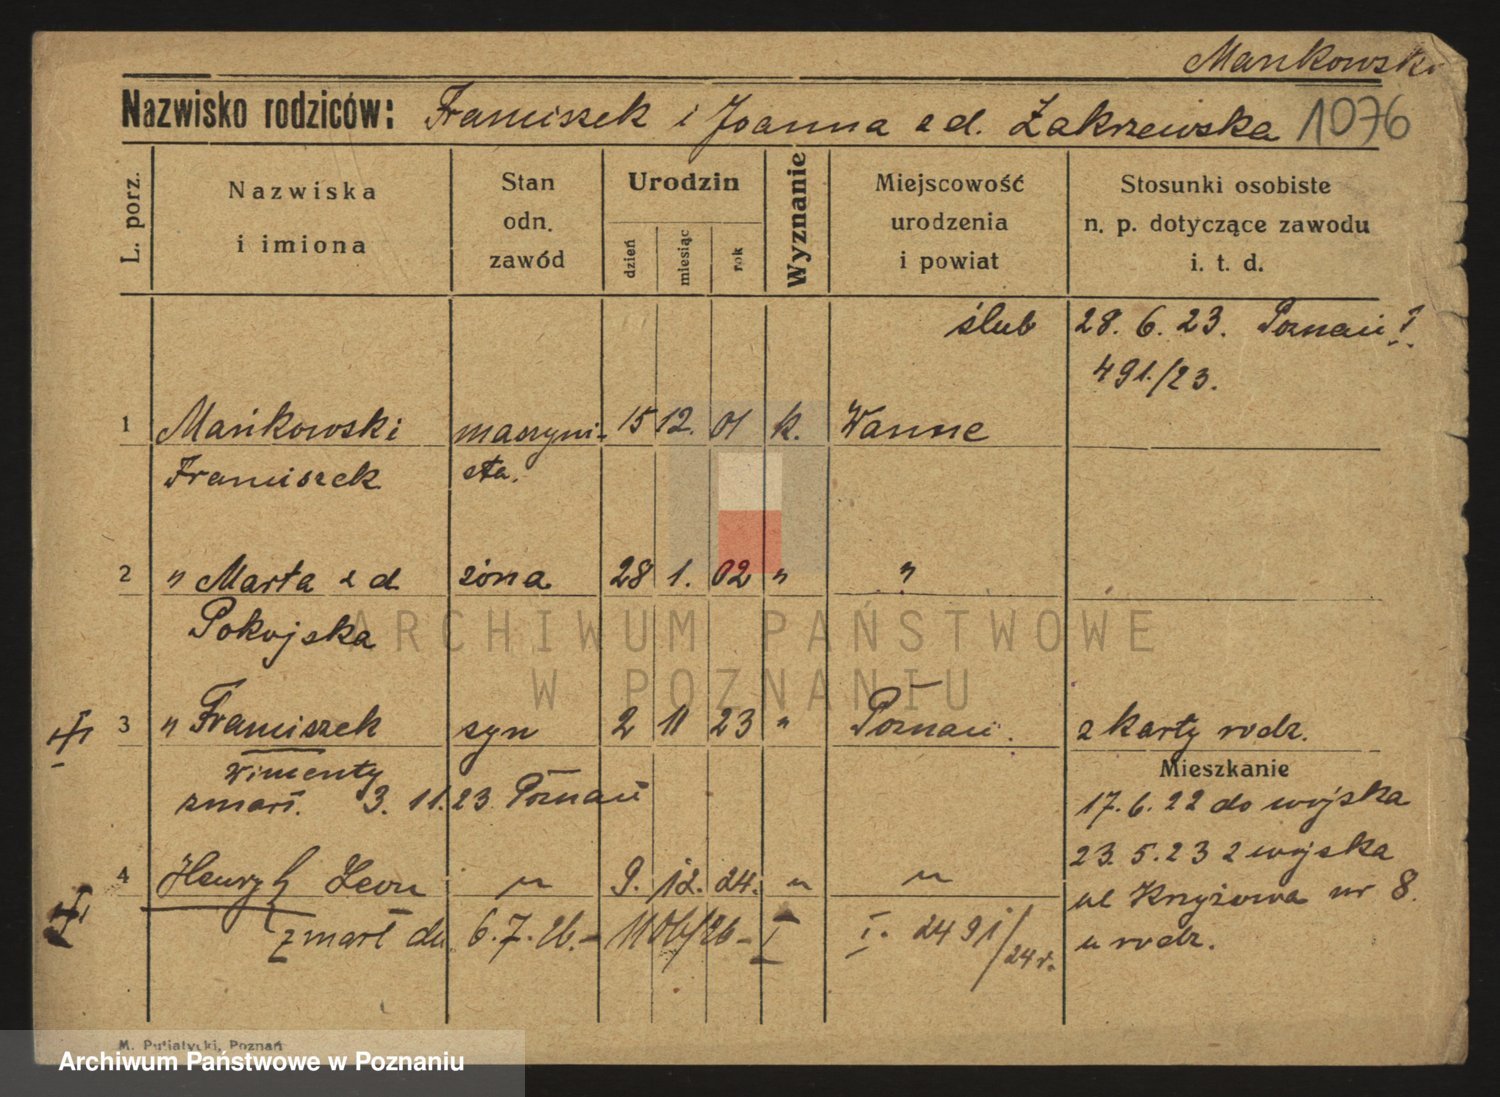 Mankowski
Nazwisko rodziców: Franciszek i Joanna z d. Zakrzewska 1076
L. porz.
Nazwiska i imiona
Stan odn. zawód
Urodzin
dzień
miesiąc
rok
Wyznanie
Miejscowość urodzenia i powiat
Stosunki osobiste n. p. dotyczące zawodu i. t. d.
ślub 28. 6. 23. Poznań I
491./23.
1 Mańkowski maszyni- 15 12. 01 k. Wanne
Franciszek sta.
2 " Marta z d żona 28 1. 02 " "
Pokojska
3 " Franciszek syn 2 11 23 " Poznań. z karty rodz.
Mieszkanie
zmarł. 3. 11. 23 Poznań
17. 6. 22 do wojska
23. 5. 23 z wojska
4 Henryk Leon " 9. 12. 24. " "
ul Krzyżowa nr 8.
zmarł dn 6. 7. 26. – 1106/26 – I I. 2491/24 r.
u rodz.
ARCHIWUM PAŃSTWOWE
W POZNANIU
M. Putiatycki, Poznań
Archiwum Państwowe w Poznaniu